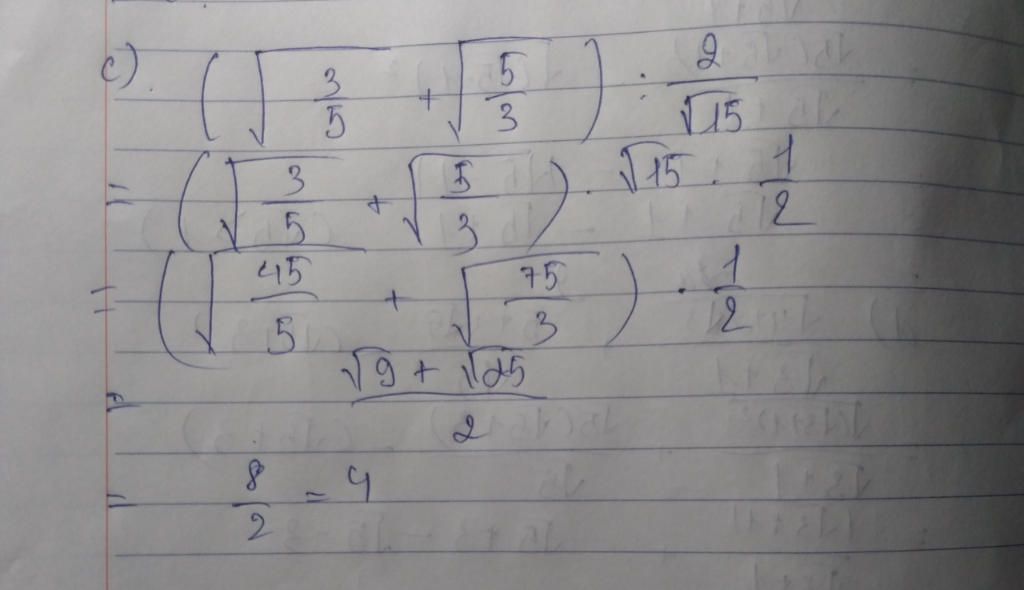 c) ( √(3/5) + √(5/3) ) : 2/√15
= ( √(3/5) + √(5/3) ) . √15 . 1/2
= ( √(45/5) + √(75/3) ) . 1/2
= (√9 + √25)/2
= 8/2 = 4